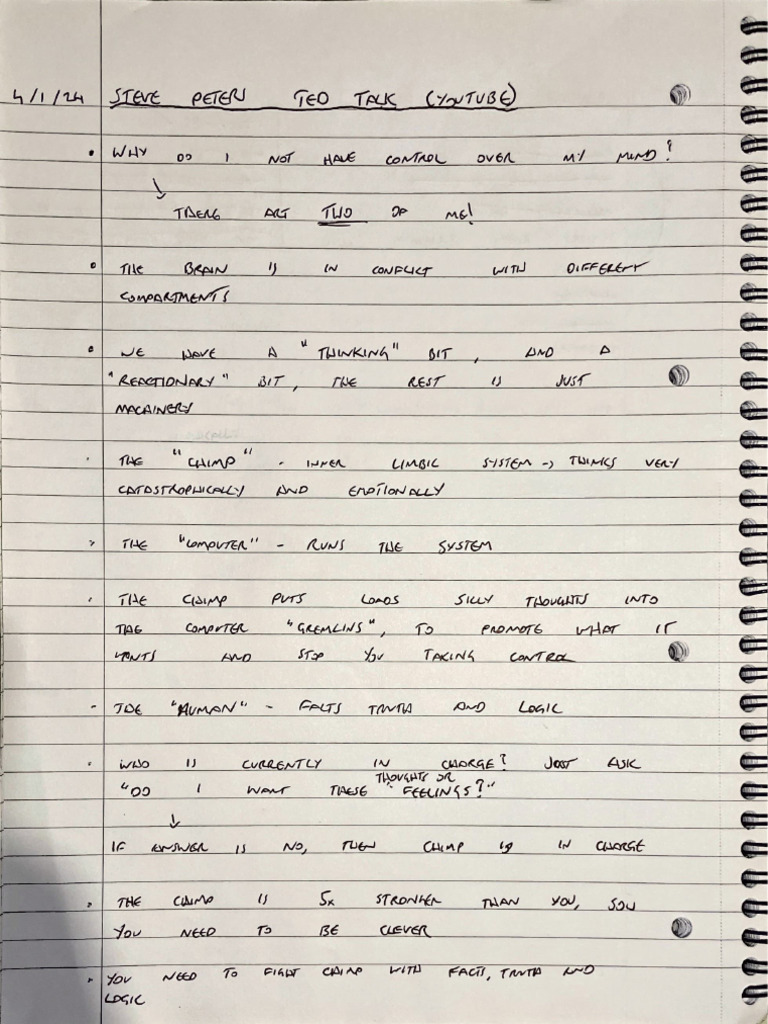 4/1/24 STEVE PETERS TED TALK (YOUTUBE)
• WHY DO I NOT HAVE CONTROL OVER MY MIND?
↳ THERE ARE TWO OF ME!
• THE BRAIN IS IN CONFLICT WITH DIFFERENT
COMPARTMENTS
• WE HAVE A "THINKING" BIT, AND A
"REACTIONARY" BIT, THE REST IS JUST
MACHINERY
• THE "CHIMP" - INNER LIMBIC SYSTEM -> THINKS VERY
CATASTROPHICALLY AND EMOTIONALLY
• THE "COMPUTER" - RUNS THE SYSTEM
• THE CHIMP PUTS LOADS SILLY THOUGHTS INTO
THE COMPUTER "GREMLINS", TO PROMOTE WHAT IT
WANTS AND STOP YOU TAKING CONTROL
- THE "HUMAN" - FACTS TRUTH AND LOGIC
• WHO IS CURRENTLY IN CHARGE? JUST ASK
"DO I WANT THESE THOUGHTS OR FEELINGS?"
↓
IF ANSWER IS NO, THEN CHIMP IS IN CHARGE
• THE CHIMP IS 5x STRONGER THAN YOU, SOU
YOU NEED TO BE CLEVER
• YOU NEED TO FIGHT CHIMP WITH FACTS, TRUTH AND
LOGIC